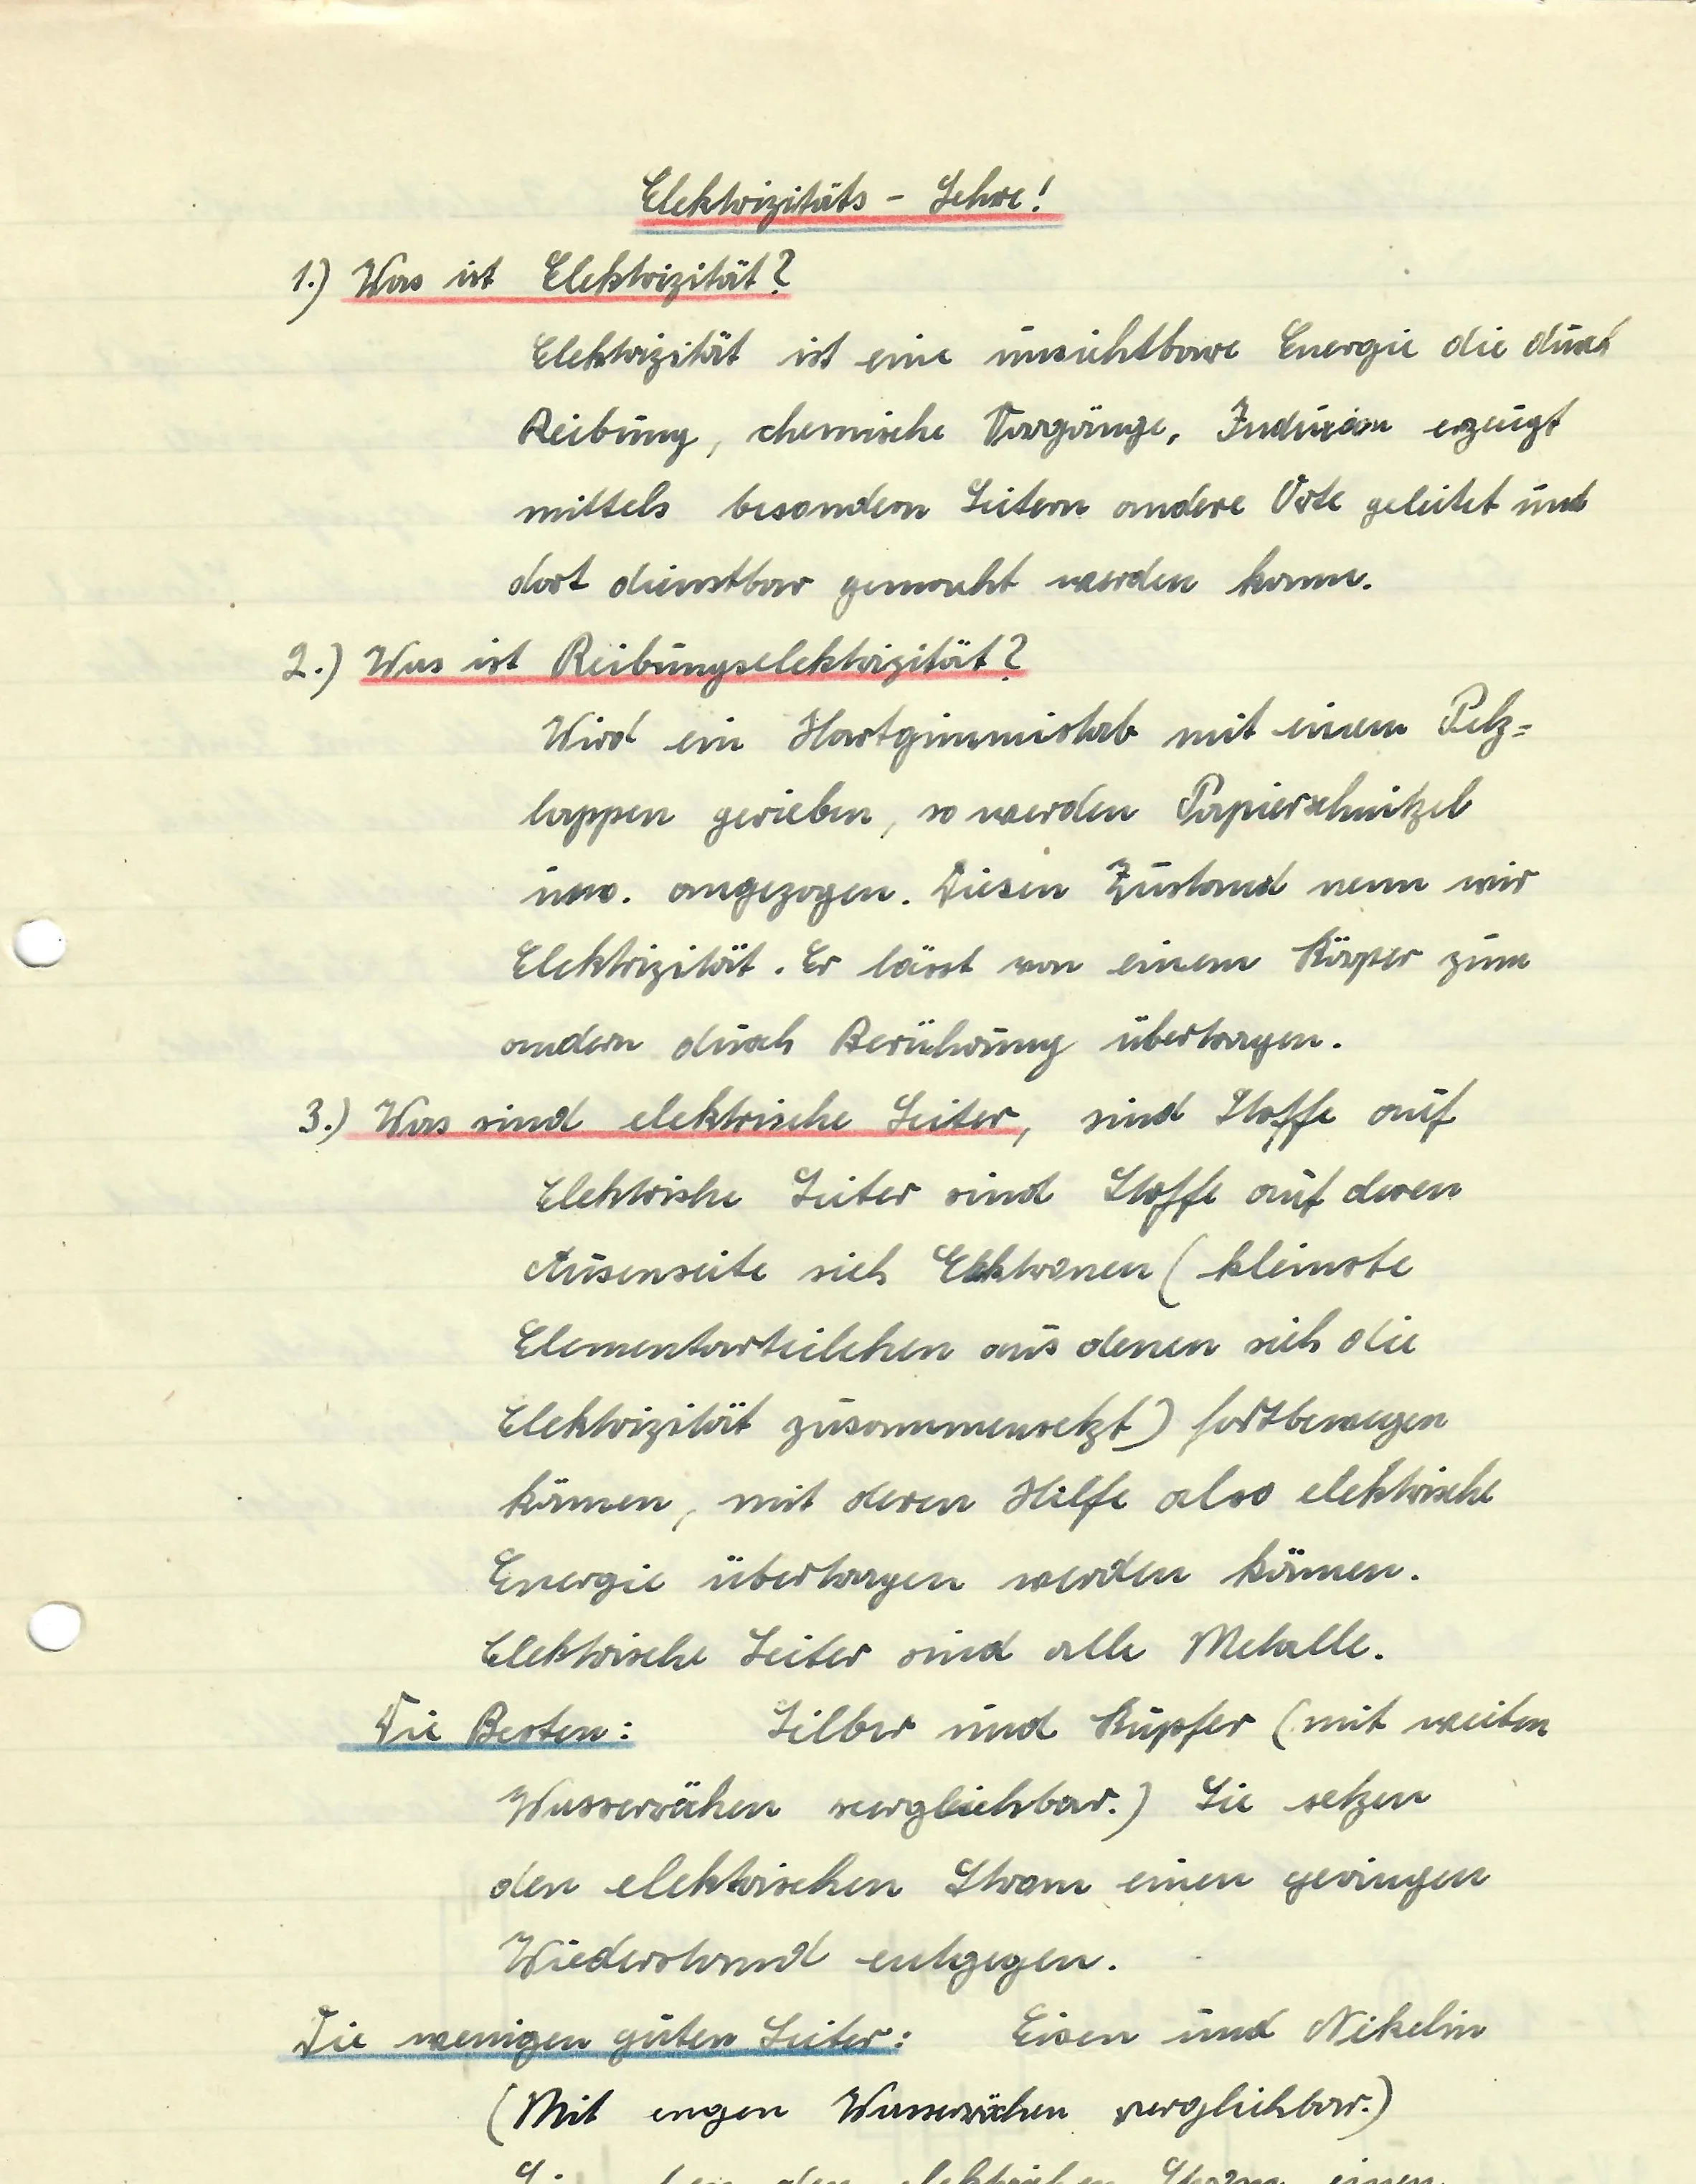 Elektrizitäts - Lehre!
1.) Was ist Elektrizität?
Elektrizität ist eine unsichtbare Energie die durch
Reibung, chemische Vorgänge, Induxion erzeugt
mittels besondern Leitern andere Orte geleitet und
dort dienstbar gemacht werden kann.
2.) Was ist Reibungselektrizität?
Wird ein Hartgummistab mit einem Pelz=
lappen gerieben, so werden Papierschnitzel
usw. angezogen. Diesen Zustand nenn wir
Elektrizität. Er lässt von einem Körper zum
andern durch Berührung übertragen.
3.) Was sind elektrische Leiter, sind Stoffe auf
Elektrishe Leiter sind Stoffe auf deren
Ausenseite sich Elektronen (kleinste
Elementarteilchen aus denen sich die
Elektrizität zusammensetzt) fortbewegen
können, mit deren Hilfe also elektrische
Energie übertragen werden können.
Elektrische Leiter sind alle Metalle.
Die Besten: Silber und Kupfer (mit weiten
Wasserröhen verglichbar.) Sie setzen
den elektrischen Strom einen geringen
Wiederstand entgegen.
Die wenigen guten Leiter: Eisen und Nikelin
(Mit engen Wasserröhen verglichbar.)
den elektrichen Strom einen